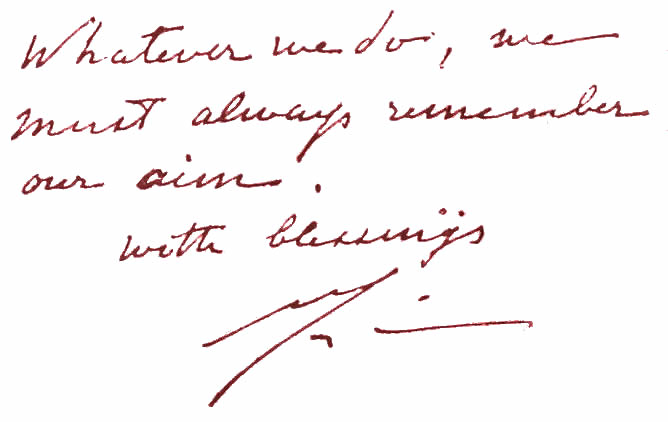 Whatever we do, we
must always remember
our aim.
with blessings